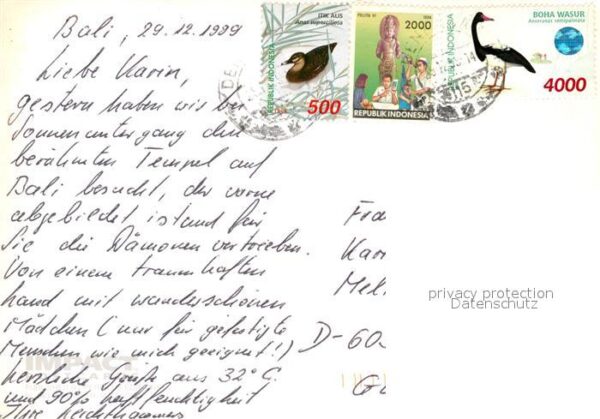 Bali, 29.12.1999
Liebe Karin,
gestern haben wir bei
Sonnenuntergang den
berühmten Tempel auf
Bali besucht, der vorne
abgebildet ist und für
Sie die Dämonen vertrieben.
Von einem traumhaften
Land mit wunderschönen
Mädchen (nur für gefestigte
Menschen wie mich geeignet!)
herzliche Grüße aus 32° C.
und 90% Luftfeuchtigkeit
Ihre
ITIK ALIS
Anas superciliosa
REPUBLIK INDONESIA
500
PELITA VI
2000
REPUBLIK INDONESIA
BOHA WASUR
Anseranas semipalmata
REPUBLIK INDONESIA
4000
Fra
Kari
Mel
D-60
privacy protection
Datenschutz
IMPACT